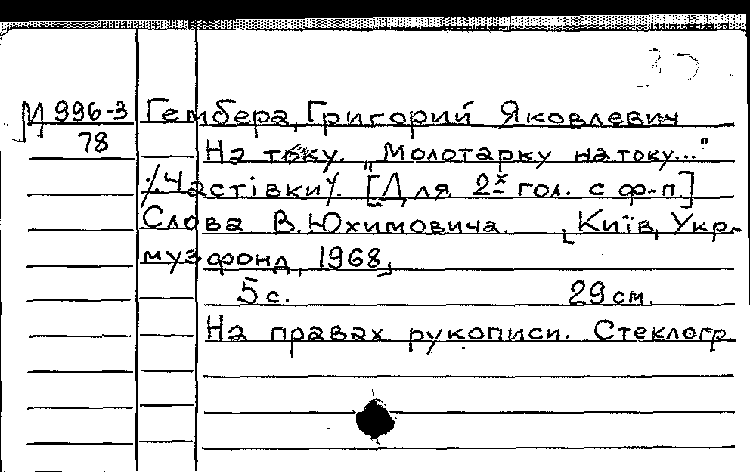 М 996-3
78
Гембера, Григорий Яковлевич
На току. „Молотарку на току..."
/Частівки/. [Для 2х гол. с ф-п]
Слова В. Юхимовича. [Київ, Укр.
музфонд, 1968]
5 с. 29 см.
На правах рукописи. Стеклогр.